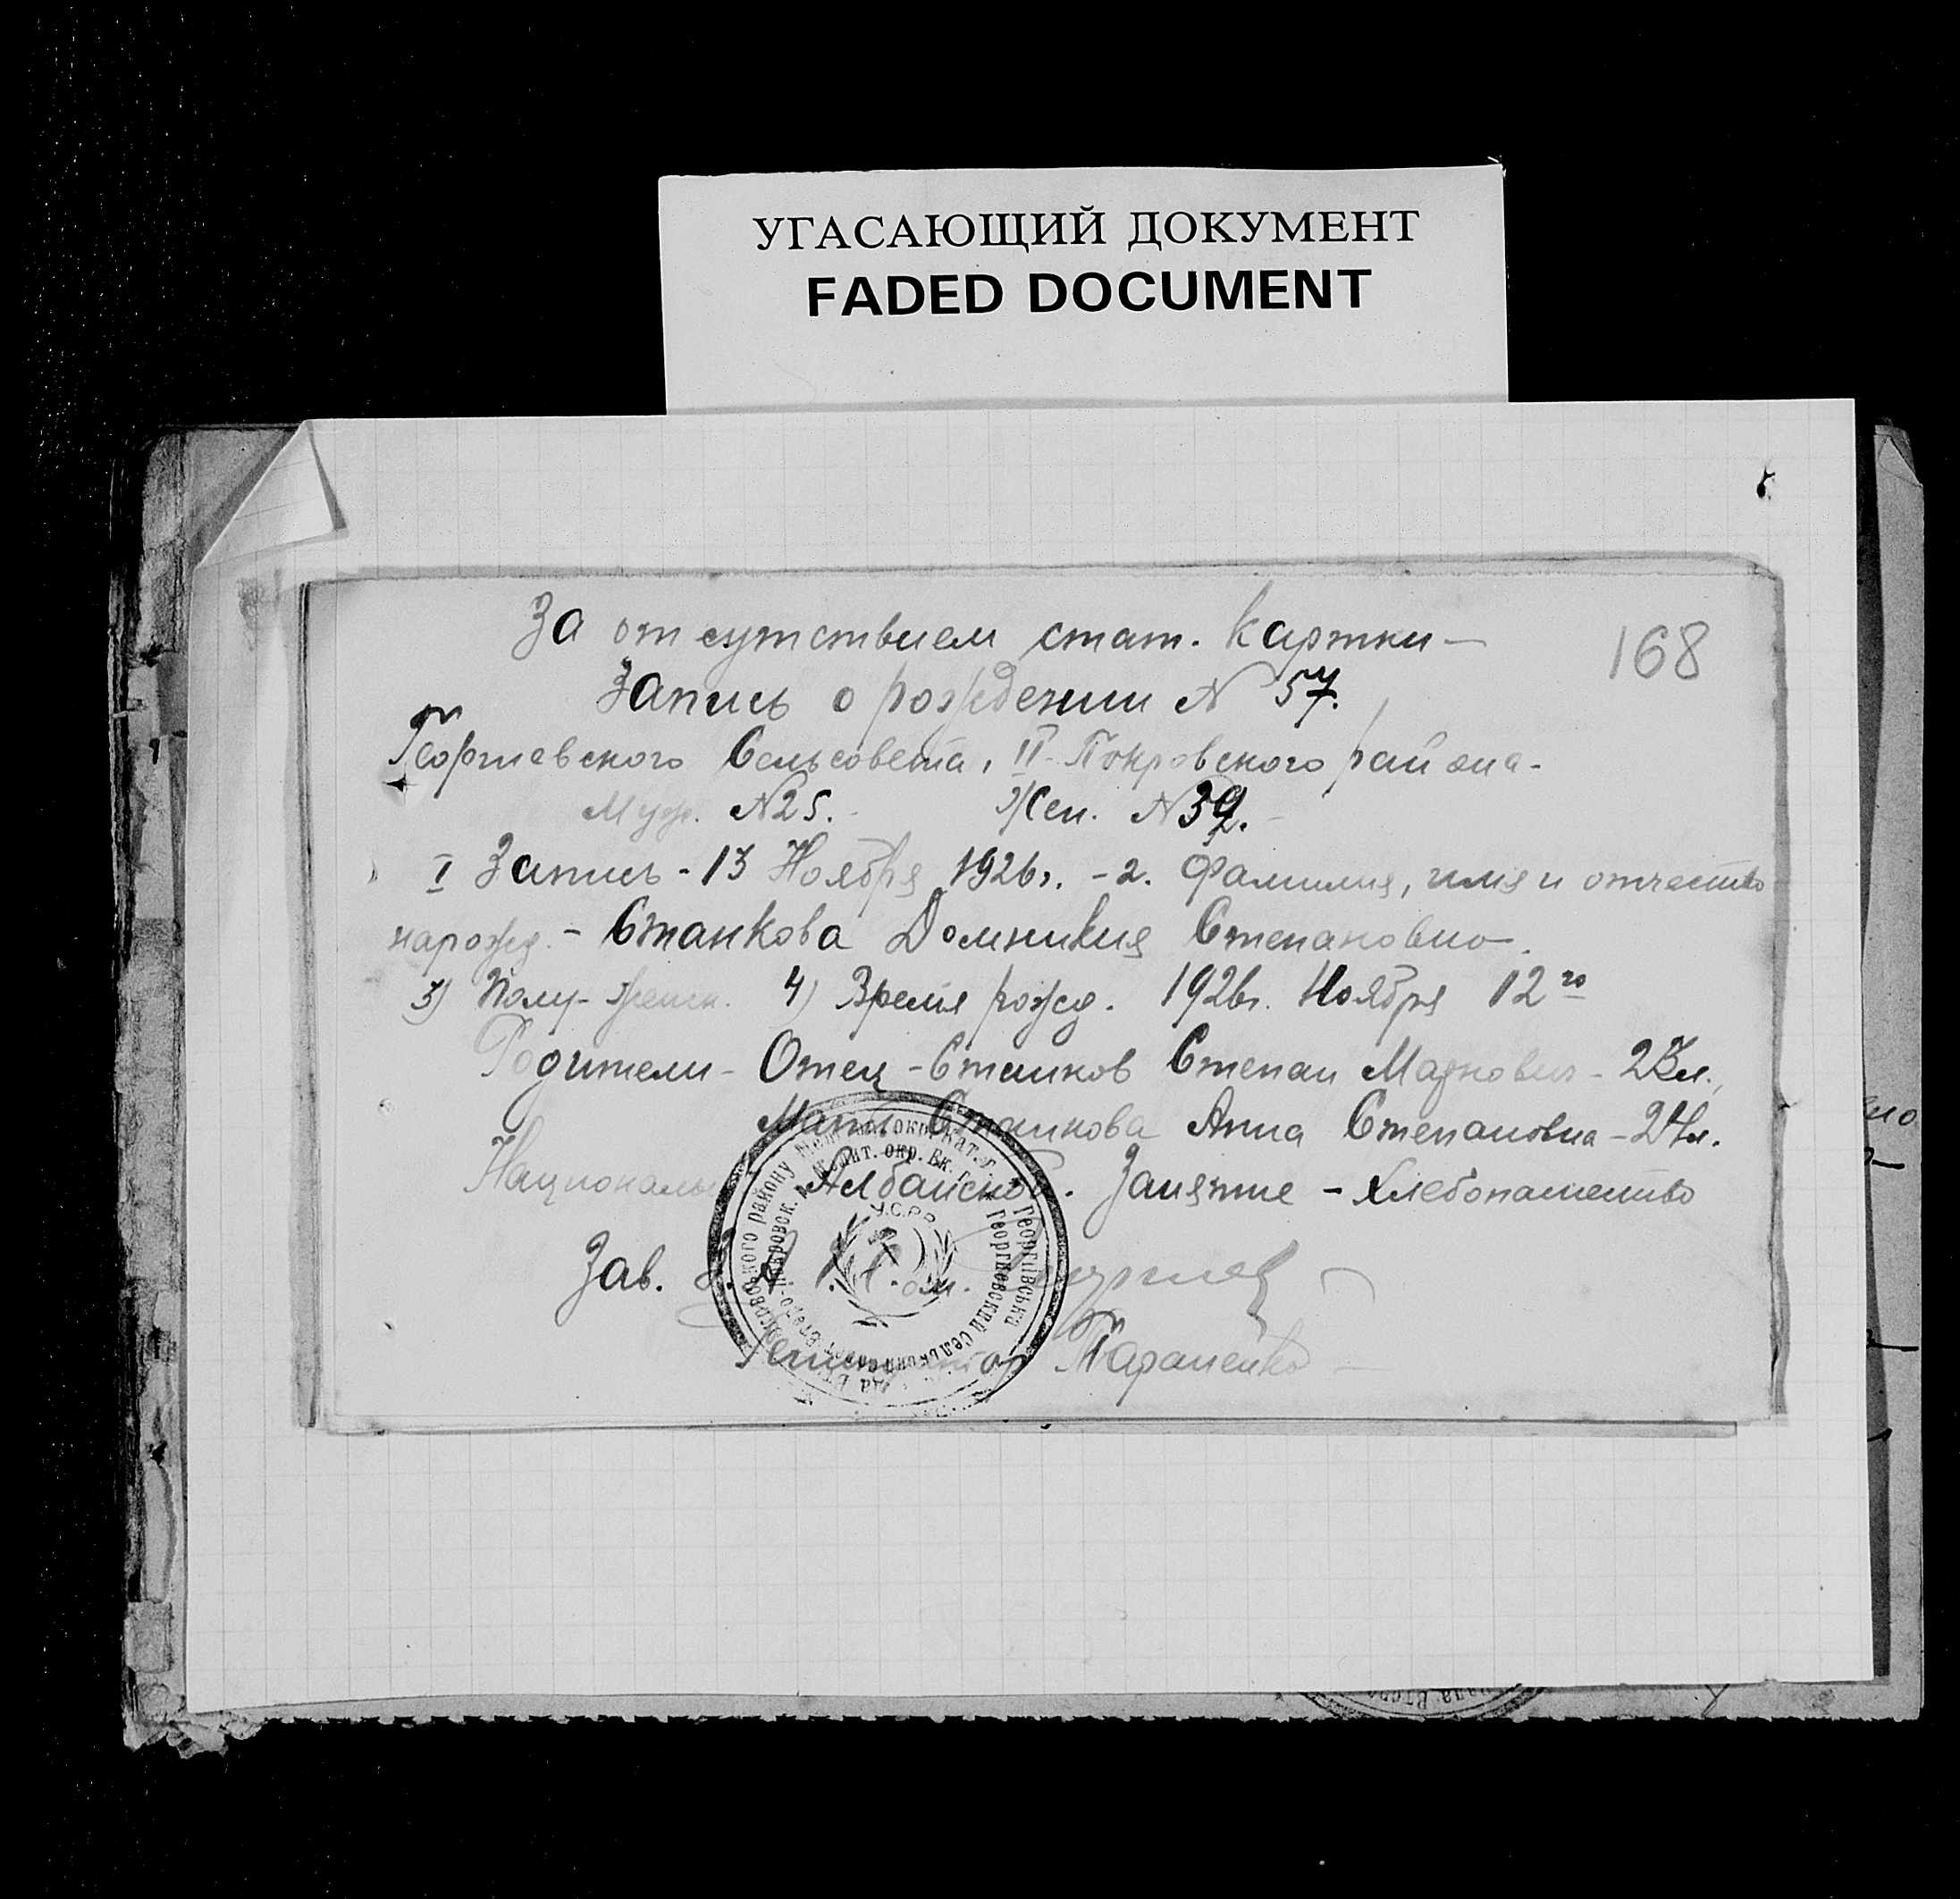 УГАСАЮЩИЙ ДОКУМЕНТ
FADED DOCUMENT
168
За отсутствием стат. картки —
Запись о рождении N 57.
Георгиевского Сельсовета, II-Покровского района.
Муж. N25. Жен. N32.
I Запись - 13 Ноября 1926г. - 2. Фамилия, имя и отчество
нарожд. - Станкова Домникия Степановно.
3) Полу- женск. 4) Время рожд. 1926г. Ноября 12го
Родители - Отец - Станков Степан Маркович - 23л.,
Мать Станкова Анна Степановна - 24л.
Националь Албанской. Занятие - хлебопашество
Зав.
Тараненко
У.С.Р.Р.
Георгіївська
Георгиевский сельский